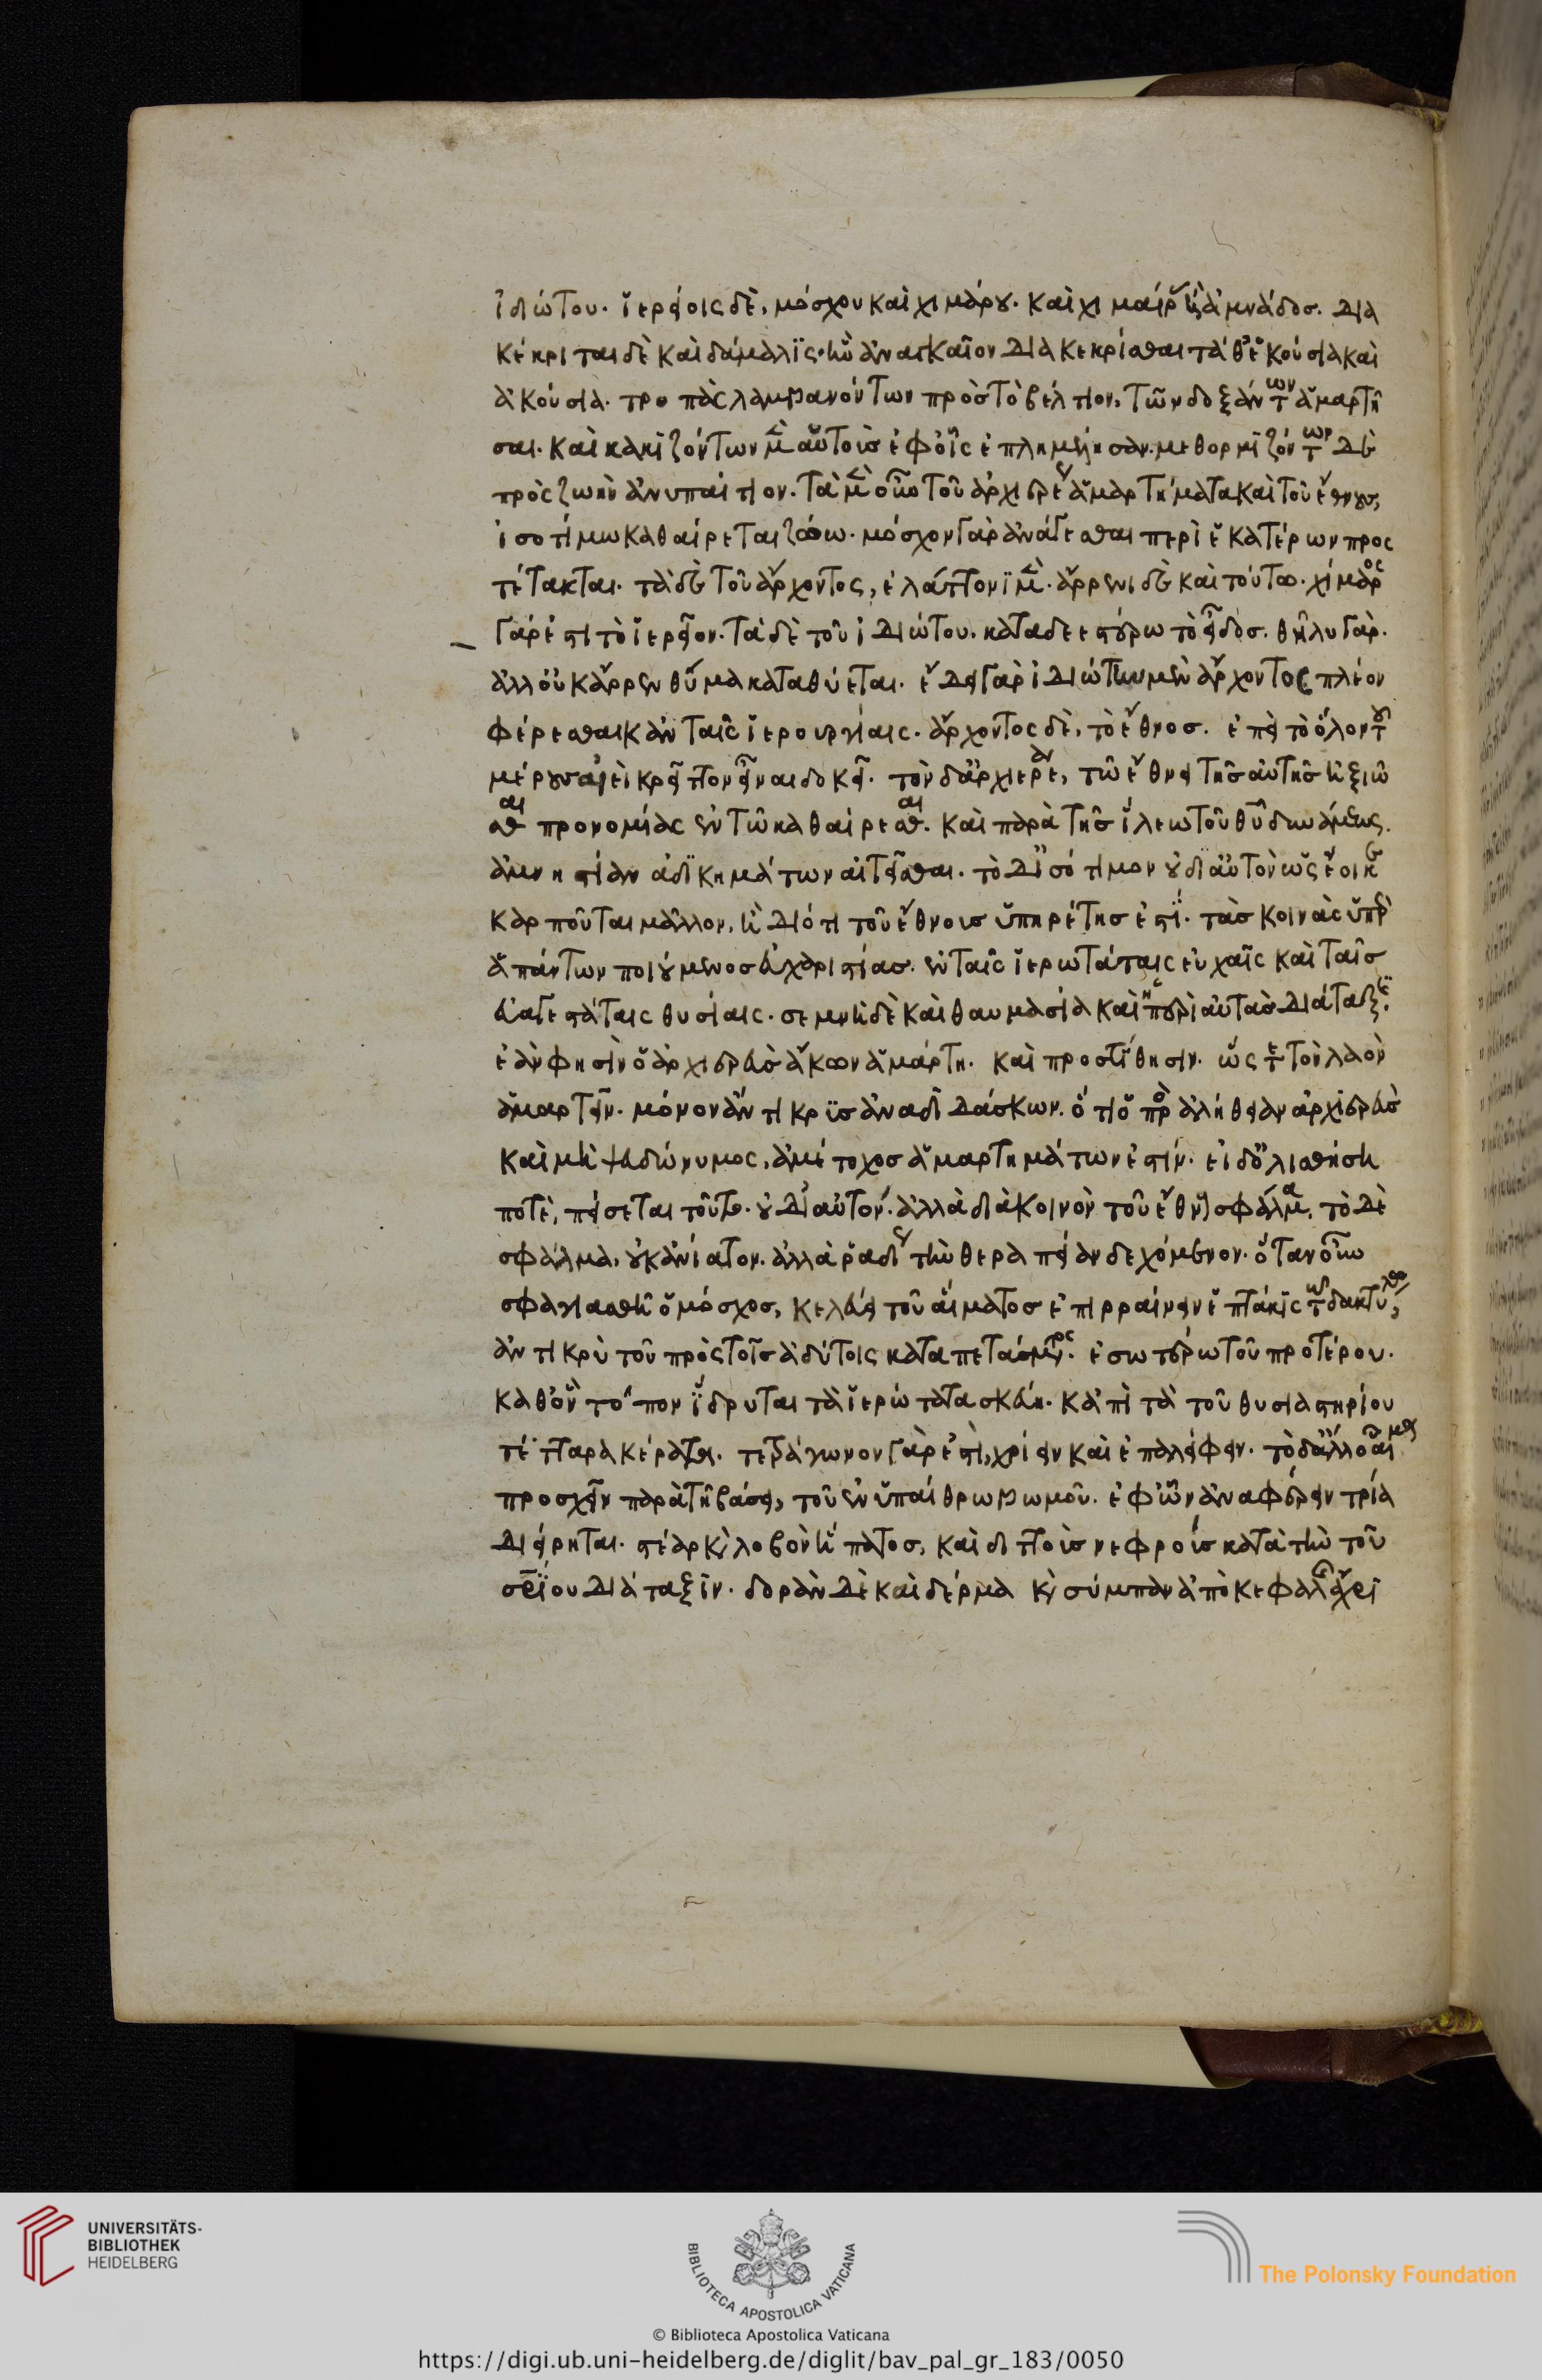 ἰδιώτου. ἱερείοις δὲ, μόσχου καὶ χιμάρου. καὶ χιμαίρ ἢ ἀμνάδος. δια
κέκριται δὲ καὶ δάμαλις. ἣν ἀναγκαῖον διακεκρίσθαι τά θ' ἑκούσια καὶ
ἀκούσια. τροπὰς λαμβανόντων πρὸς τὸ βέλτιον, τῶν δοξάντων ἁμαρτῆ
σαι. καὶ κακιζόντων μὲν αὑτοὺς ἐφ' οἷς ἐπλημμέλησαν. μεθορμιζόντων δὲ
πρὸς ζωὴν ἀνυπαίτιον. τὰ μὲν οὖν τοῦ ἀρχιερέως ἁμαρτήματα καὶ τοῦ ἔθνους,
ἰσοτίμω καθαίρεται ζώω. μόσχον γὰρ ἀνάγεσθαι περὶ ἑκατέρων προς
τέτακται. τὰ δὲ τοῦ ἄρχοντος, ἐλάττονι μὲν. ἄρρενι δὲ καὶ τούτω. χίμαρος
γάρ ἐστι τὸ ἱερεῖον. τὰ δὲ τοῦ ἰδιώτου. καταδεεστέρω τὸ εἶδος. θῆλυ γὰρ.
ἀλλ' οὐκ ἄρρεν θῦμα καταθύεται. ἔδει γὰρ ἰδιώτην μὲν ἄρχοντος πλέον
φέρεσθαι κἀν ταῖς ἱερουργίαις. ἄρχοντος δὲ, τὸ ἔθνος. ἐπεὶ τὸ ὅλον τοῦ
μέρους ἀεὶ κρεῖττον εἶναι δοκεῖ. τὸν δ' ἀρχιερέα, τῶ ἔθνει τῆς αὐτῆς ἠξιῶ
σθαι προνομίας ἐν τῶ καθαίρεσθαι. καὶ παρὰ τῆς ἵλεω τοῦ θεοῦ δυνάμεως.
ἀμνηστίαν ἀδικημάτων αἰτεῖσθαι. τὸ δ' ἰσότιμον οὐ δι' αὑτὸν ὡς ἔοικε
καρποῦται μᾶλλον, ἢ διότι τοῦ ἔθνους ὑπηρέτης ἐστί. τὰς κοινὰς ὑπὲρ
ἁπάντων ποιούμενος εὐχαριστίας. ἐν ταῖς ἱερωτάταις εὐχαῖς καὶ ταῖς
εὐαγεστάταις θυσίαις. σεμνὴ δὲ καὶ θαυμασία καὶ ἡ περὶ αὐτὰς διάταξις.
ἐὰν φησὶν ὁ ἀρχιερεὺς ἄκων ἁμάρτη. καὶ προστίθησιν. ὥστε τὸν λαὸν
ἁμαρτεῖν. μόνον ἄντικρυς ἀναδιδάσκων. ὅτι ὁ πρὸς ἀλήθειαν ἀρχιερεὺς
καὶ μὴ ψευδώνυμος, ἀμέτοχος ἁμαρτημάτων ἐστίν. εἰ δ' ὀλισθήση
ποτὲ, πείσεται τοῦτο. οὐ δι' αὑτόν. ἀλλὰ διὰ κοινὸν τοῦ ἔθνους σφάλμα. τὸ δὲ
σφάλμα, οὐκ ἀνίατον. ἀλλὰ ῥαδίως τὴν θεραπείαν δεχόμενον. ὅταν οὖν
σφαγιασθῆ ὁ μόσχος, κελεύει τοῦ αἵματος ἐπιρραίνειν ἑπτάκις τῶ δακτύλω,
ἀντικρὺ τοῦ πρὸς τοῖς ἀδύτοις καταπετάσματος. ἐσωτέρω τοῦ προτέρου.
καθ' ὃν τόπον ἵδρυται τὰ ἱερώτατα σκεύη. κἀπὶ τὰ τοῦ θυσιαστηρίου
τέτταρα κέρατα. τετράγωνον γάρ ἐστι, χρίειν καὶ ἐπαλείφειν. τὸ δ' ἄλλο αἷμα
προσχεῖν παρὰ τῆ βάσει, τοῦ ἐν ὑπαίθρω βωμοῦ. ἐφ' ὧν ἀναφέρειν τρία
διείρηται. στέαρ καὶ λοβὸν ἥπατος, καὶ διττοὺς νεφροὺς κατὰ τὴν τοῦ
σεῖου διάταξιν. δορὰν δὲ καὶ δέρμα καὶ σύμπαν ἀπὸ κεφαλῆς ἄχρι
UNIVERSITÄTS-
BIBLIOTHEK
HEIDELBERG
BIBLIOTECA APOSTOLICA VATICANA
The Polonsky Foundation
© Biblioteca Apostolica Vaticana
https://digi.ub.uni-heidelberg.de/diglit/bav_pal_gr_183/0050